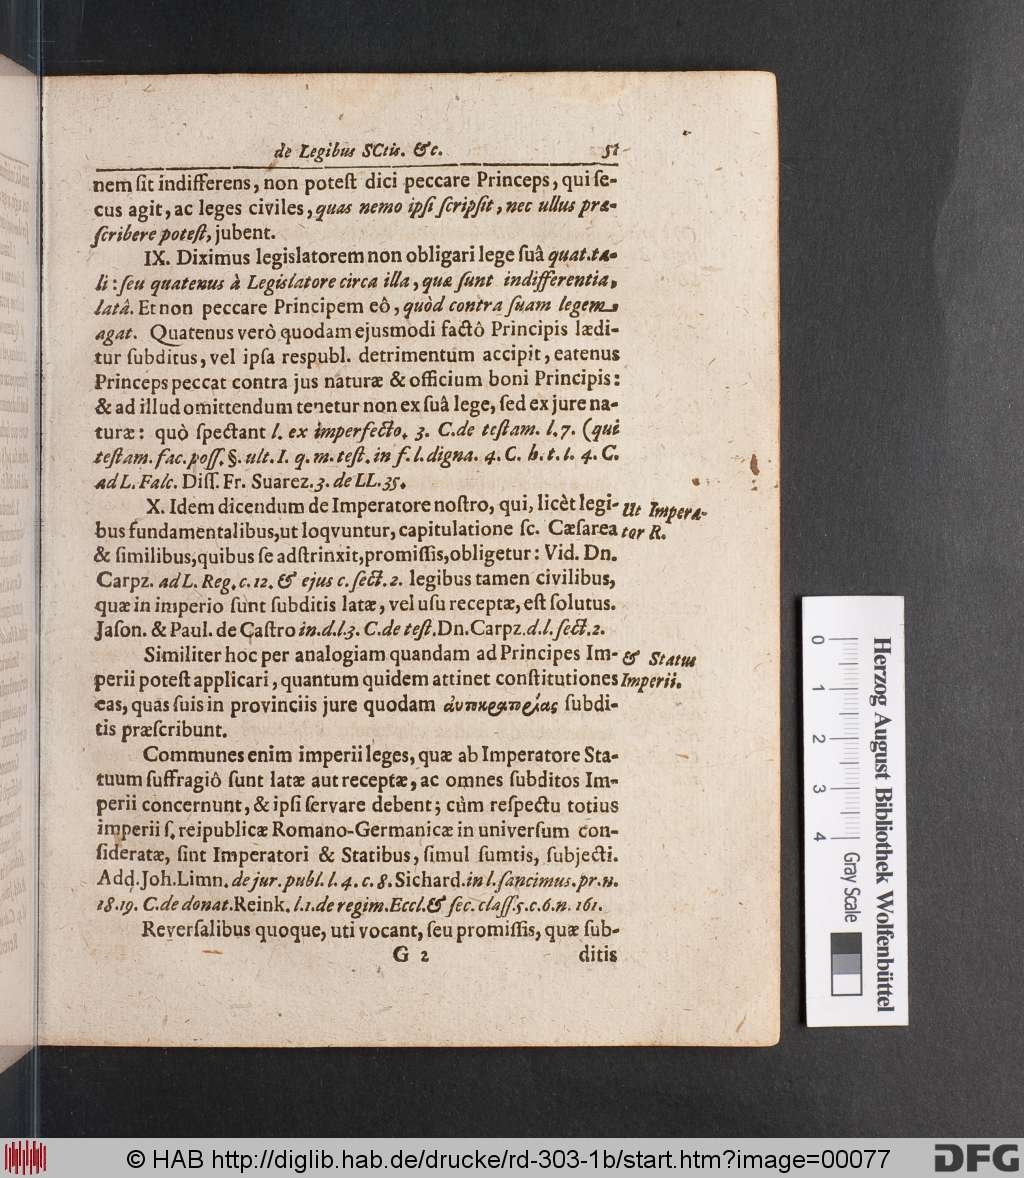 de Legibus SCtis. &c. 51
nem ſit indifferens, non poteſt dici peccare Princeps, qui ſe-
cus agit, ac leges civiles, quas nemo ipſi ſcripſit, nec ullus præ-
ſcribere poteſt, jubent.
IX. Diximus legislatorem non obligari lege ſuâ quat. ta-
li: ſeu quatenus à Legislatore circa illa, quæ ſunt indifferentia,
latâ. Et non peccare Principem eô, quòd contra ſuam legem
agat. Quatenus verò quodam ejusmodi factô Principis lædi-
tur ſubditus, vel ipſa respubl. detrimentum accipit, eatenus
Princeps peccat contra jus naturæ & officium boni Principis:
& ad illud omittendum tenetur non ex ſuâ lege, ſed ex jure na-
turæ: quò ſpectant l. ex imperfecto. 3. C. de teſtam. l. 7. (qui
teſtam. fac. poſſ. §. ult. I. q. m. teſt. in f. l. digna. 4. C. h. t. l. 4. C.
ad L. Falc. Diſſ. Fr. Suarez. 3. de LL. 35.
X. Idem dicendum de Imperatore noſtro, qui, licèt legi- Ut Impera-
bus fundamentalibus, ut loqvuntur, capitulatione ſc. Cæſarea tor R.
& ſimilibus, quibus ſe adſtrinxit, promiſſis, obligetur: Vid. Dn.
Carpz. ad L. Reg. c. 12. & ejus c. ſect. 2. legibus tamen civilibus,
quæ in imperio ſunt ſubditis latæ, vel uſu receptæ, eſt ſolutus.
Jaſon. & Paul. de Caſtro in. d. l. 3. C. de teſt. Dn. Carpz. d. l. ſect. 2.
Similiter hoc per analogiam quandam ad Principes Im- & Status
perii poteſt applicari, quantum quidem attinet conſtitutiones Imperii.
eas, quas ſuis in provinciis jure quodam ἀυτοκρατορίας ſubdi-
tis præſcribunt.
Communes enim imperii leges, quæ ab Imperatore Sta-
tuum ſuffragiô ſunt latæ aut receptæ, ac omnes ſubditos Im-
perii concernunt, & ipſi ſervare debent; cùm reſpectu totius
imperii ſ. reipublicæ Romano-Germanicæ in univerſum con-
ſideratæ, ſint Imperatori & Statibus, ſimul ſumtis, ſubjecti.
Add. Joh. Limn. de jur. publ. l. 4. c. 8. Sichard. in l. ſancimus. pr. n.
18. 19. C. de donat. Reink. l. 1. de regim. Eccl. & ſec. claſſ. 5. c. 6. n. 161.
Reverſalibus quoque, uti vocant, ſeu promiſſis, quæ ſub-
G 2 ditis
Herzog August Bibliothek Wolfenbüttel
0 1 2 3 4 Gray Scale
© HAB http://diglib.hab.de/drucke/rd-303-1b/start.htm?image=00077
DFG